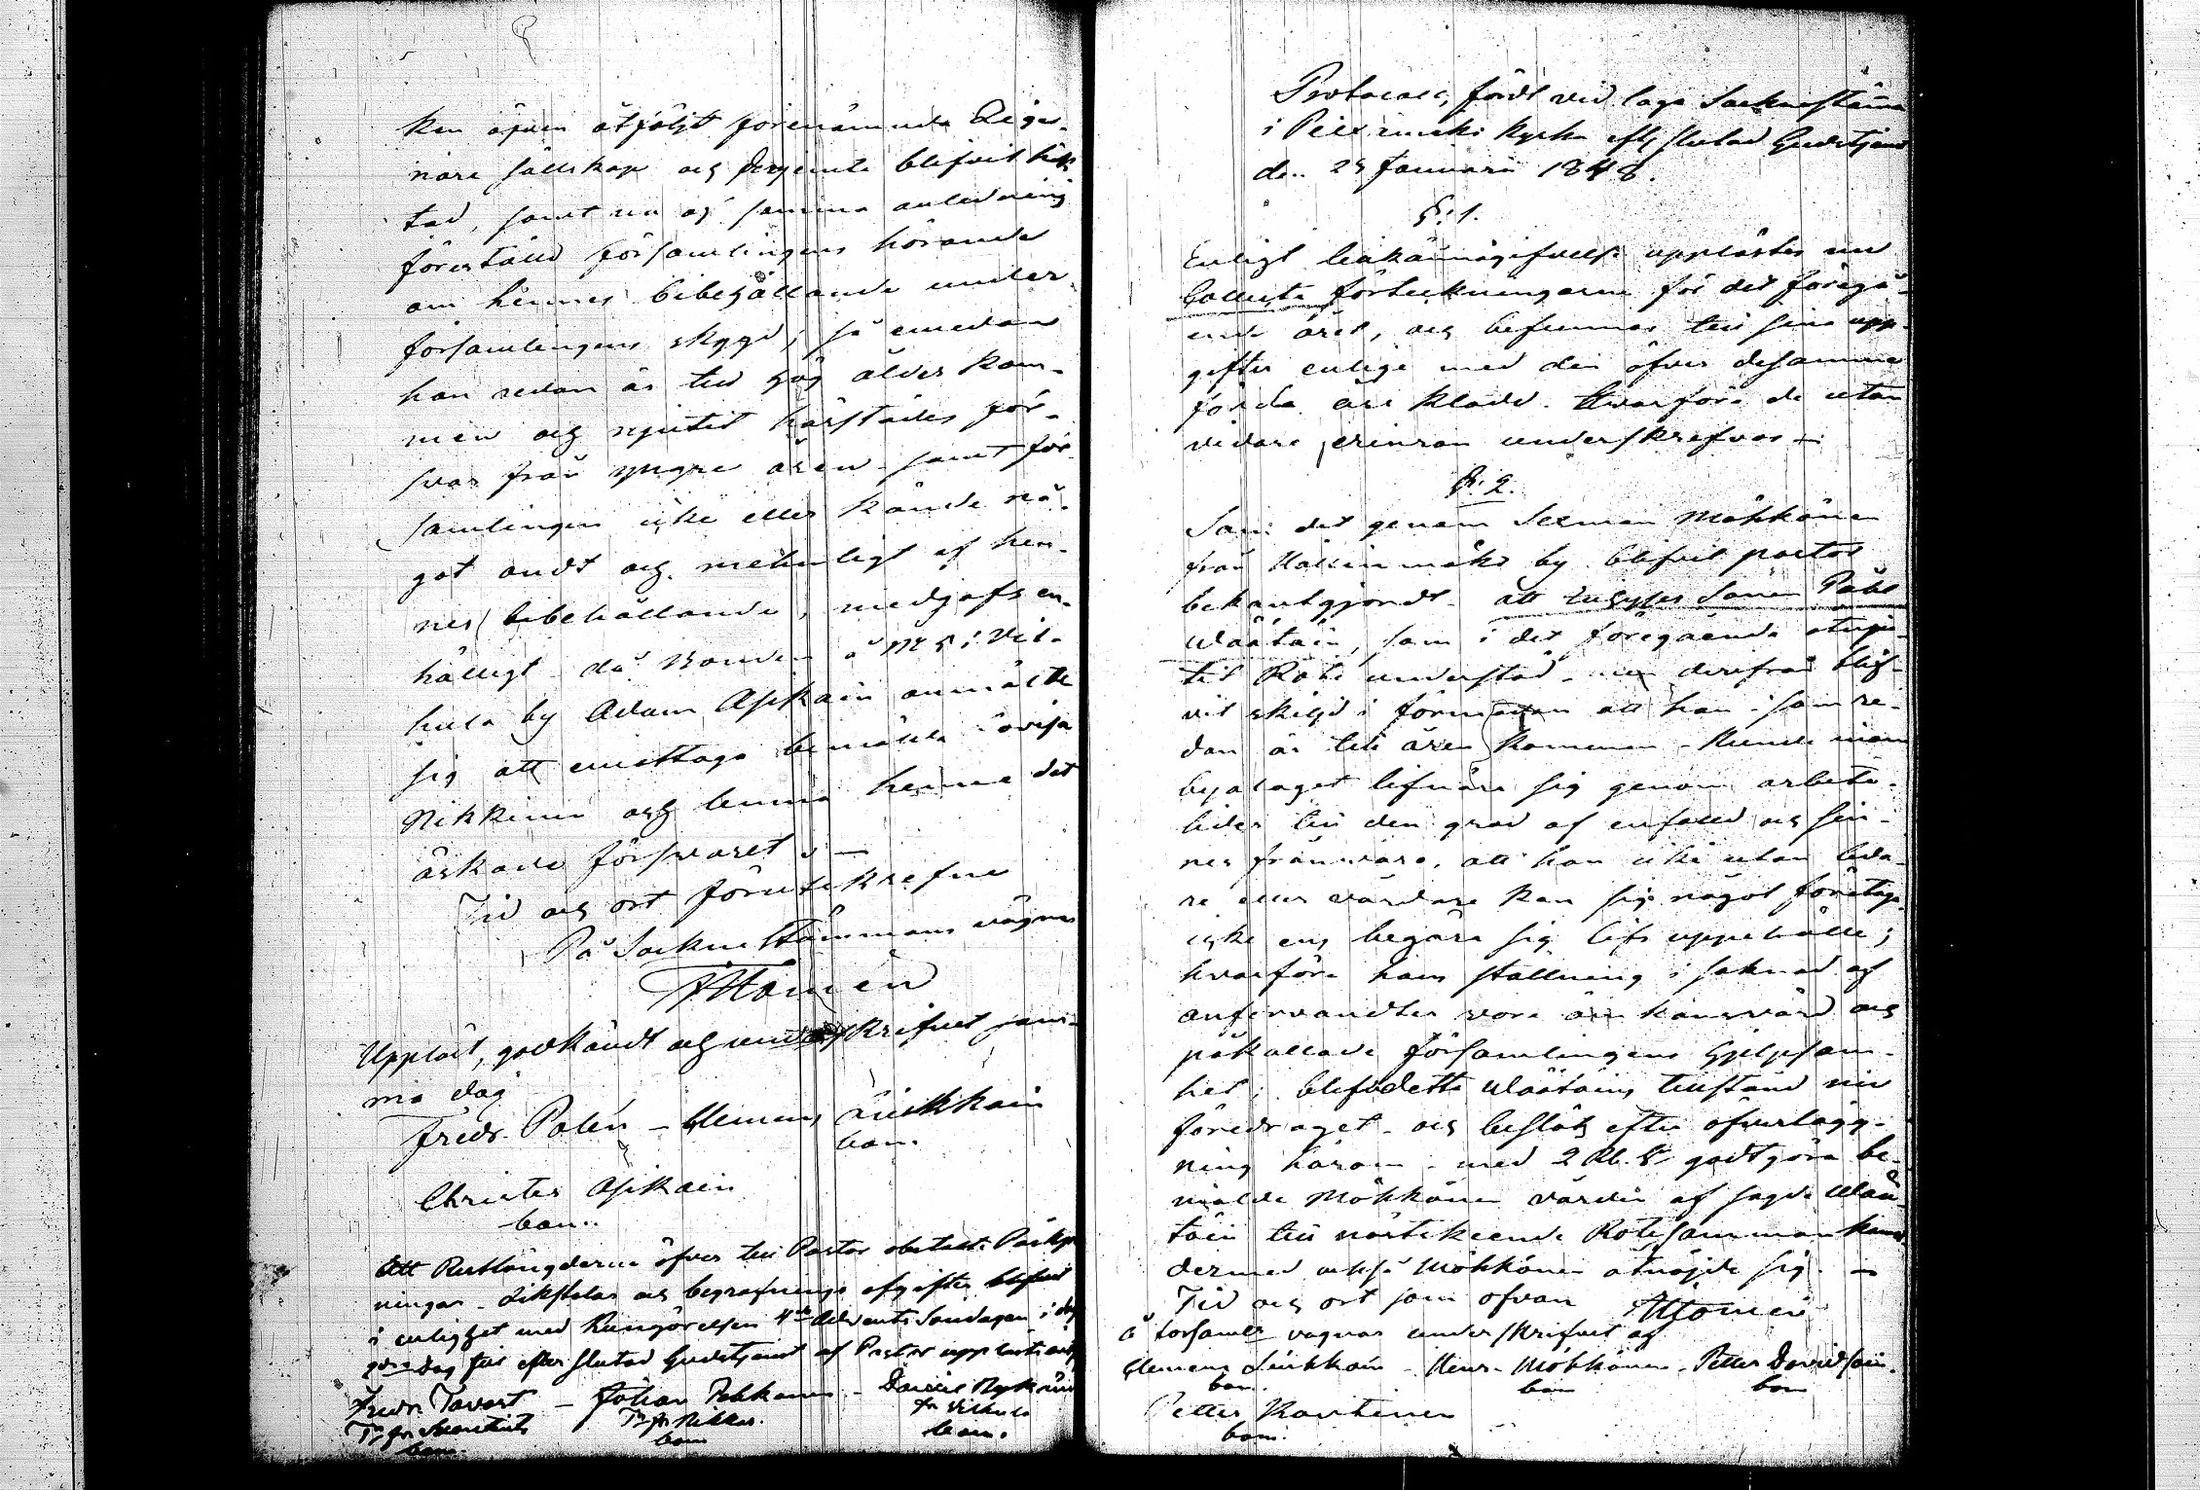 ken äfven åtföljt förenämnde Zige-
nare sällskap och derjemte blifvit häk
tad, samt nu af samma anledning
föreställd församlingens hörande
om hennes bibehållande under
församlingens skygd; så emedan
hon redan är till hög ålder kom-
men och njutit härstädes för-
svar från yngre åren samt för
samlingen icke eller kände nå-
got ondt och menligt af hen-
nes bibehållande, medgafs en-
hälligt då Bonden å № 5 i Vil-
hula by Adam Asikain anmälte
sig att emottaga bemälda Lovisa
Nikkinen och lemna henne det
äskade försvaret.
Tid och ort förutskrefne
På Sockne Stämmans vägnar
Upplöst, godkändt och underskrifvet sam-
ma dag
Fredr. Polén – Clemens Luukkain
bom.
Christer Asikain
bom.
Att Restlängderne öfver till Pastor obetalte Påskpe
ningar, Likstolar och begrafnings afgifter blifvit
i enlighet med Kungörelsen 4de Advents Söndagen i dag
efter slutad Gudstjenst af Pastor uppläste
Fredr Tavast – Johan Pekkanen – Daniel
bom. bom bom.
Protocoll, fördt vid laga Socknestämma
i Pieximäki kyrka efter slutad Gudstjenst
den 23 Januarii 1848.
§: 1.
Enligt tillkännagifvelse upplästes nu
Collecte förteckningarne för det föregå-
ende året, och befunnos till sina upp-
gifter enlige med den öfver desamma
förda Bok. Hvarföre de utan
vidare erinran underskrefvos –
§: 2.
Som det genom Sexman Möhkönen
från Hällinmäki by blifvit pastor
bekantgjordt att Enslige Sönen Påhl
Wäätäin, som i det föregående utgjor
till Rote understöd, men derifrån blif-
vit skiljd i förmodan att han – som re-
dan är till åren kommen – kunde inom
byalaget lifnära sig genom arbete,
lider till den grad af enfald och sin-
nes frånvaro, att han icke utan leda-
re eller vårdare kan sig något företaga
icke ens begära sig lifs uppehälle;
hvarföre hans ställning i saknad af
anförvandter vore ömkansvärd och
påkallade församlingens hjelpsam-
het; blef detta Wäätäins tillstånd nu
föredraget och beslöts efter öfverlägg-
ning härom – med 2 Rb. S. godtgöra be-
mälde Möhkönen vården af sagde Wää-
täin till nästskeende Rotesammankomst
dermed också Möhkönen åtnöjde sig. –
Tid och ort som ofvan
å församl: vägnar underskrifvet af
Clemens Luukkain – Henr. Möhkönen – Petter Davidsain
bom. bom bom
Petter Kautinen
bom.